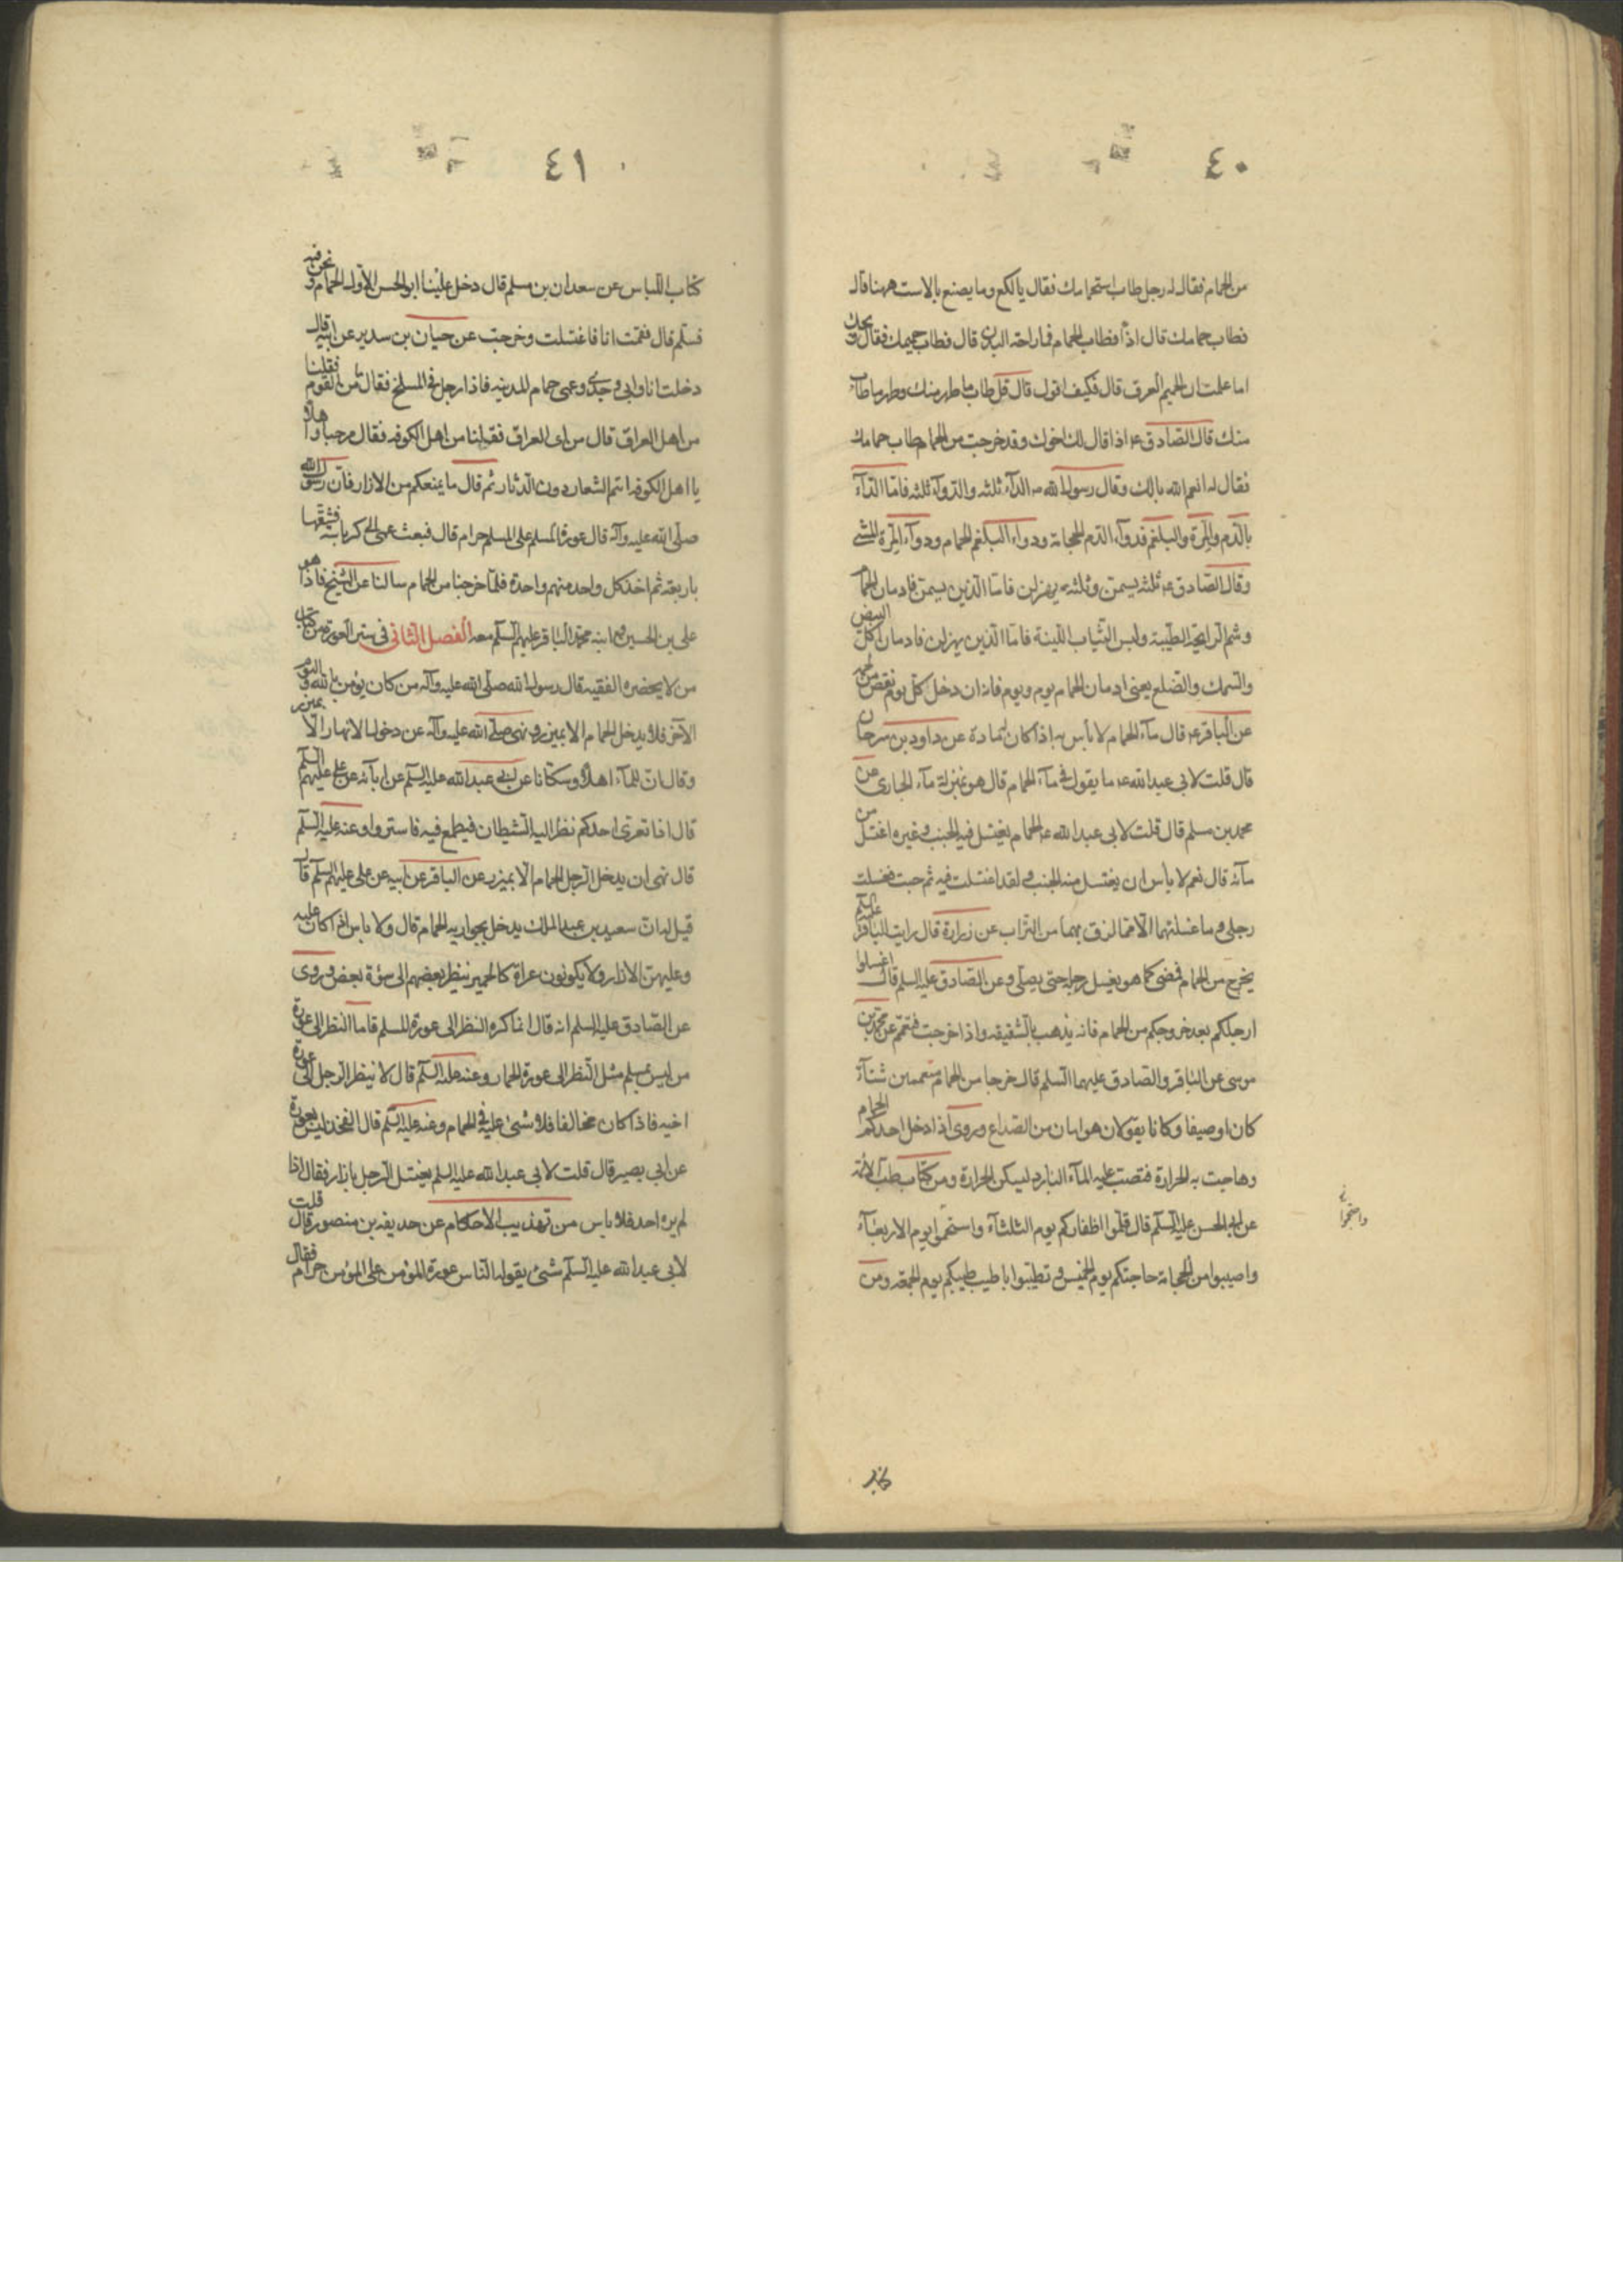 ٤٠
من الحمام فقال له رجل طاب استحمامك فقال يا لكع وما يصنع بالاست ههنا قال
فطاب حمامك قال اذا فطاب الحمام فما راحة البدن قال فطاب حميمك فقال ويحك
اما علمت ان الحميم العرق قال فكيف اقول قال قل طاب ما طهر منك وطهر ما طاب
منك قال الصادق ع اذا قال لك اخوك وقد خرجت من الحمام طاب حمامك
فقال له انعم الله بالك وقال رسول الله ص الداء ثلثة والدواء ثلثة فاما الداء
بالدم والمرة والبلغم فدواء الدم الحجامة ودواء البلغم الحمام ودواء المرة المشي
وقال الصادق ع ثلثة يسمن وثلثة يهزلن فاما الذين يسمن فادمان الحمام
وشم الرايحة الطيبة ولبس الثياب اللينة فاما الذين يهزلن فادمان اكل البيض
والسمك والضلع يعني ادمان الحمام يوم ويوم فانه ان دخل كل يوم نقص من لحمه
عن الباقر ع قال ماء الحمام لا بأس به اذا كان له مادة عن داود بن سرحان
قال قلت لابي عبد الله ع ما يقول في ماء الحمام قال هو بمنزلة ماء الجاري عن
محمد بن مسلم قال قلت لابي عبد الله ع الحمام يغتسل فيه الجنب وغيره اغتسل من
مائه قال نعم لا باس ان يغتسل منه الجنب ولقد اغتسلت فيه ثم جئت فغسلت
رجلي وما غسلتهما الا مما لزق بهما من التراب عن زرارة قال رايت الباقر عليه السلم
يخرج من الحمام فمضى كما هو يغسل رجله حتى يصلي وعن الصادق عليه السلم قال اغسلوا
ارجلكم بعد خروجكم من الحمام فانه يذهب بالشقيقة واذا خرجت فتعمم عن محمد بن
موسى عن الباقر والصادق عليهما السلم قال خرجا من الحمام متعممين شتاء
كان او صيفا وكانا يقولان هو امان من الصداع وروى اذا دخل احدكم الحمام
وهاجت به الحرارة فتصب عليه الماء البارد ليسكن الحرارة ومن كتاب طب الائمة
عن ابي الحسن عليه السلم قال قلموا اظفاركم يوم الثلثاء واستحموا يوم الاربعاء
واصيبوا من الحجامة حاجتكم يوم الخميس وتطيبوا باطيب طيبكم يوم الجمعة ومن
كتاب
٤١
كتاب اللباس عن سعدان بن مسلم قال دخل علينا ابو الحسن الاول الحمام ونحن فيه
فسلم قال فقمت انا فاغتسلت وخرجت عن حيان بن سدير عن ابيه قال
دخلت انا وابي وجدي وعمي حمام المدينة فاذا رجل في المسلخ فقال من القوم فقلنا
من اهل العراق قال من اى العراق فقلنا من اهل الكوفه فقال مرحبا واهلا
يا اهل الكوفه انتم الشعار دون الدثار ثم قال ما يمنعكم من الازار فان رسول الله
صلى الله عليه وآله قال عورة المسلم على المسلم حرام قال فبعث عمى الى كرباسة فشقها
باربعة ثم اخذ كل واحد منهم واحدة فلما خرجنا من الحمام سالنا عن الشيخ فاذا هو
علي بن الحسين ومعه ابنه محمد الباقر عليهم السلم معه الفصل الثاني في ستر العورة من كتاب
من لا يحضره الفقيه قال رسول الله صلى الله عليه وآله من كان يؤمن بالله واليوم
الآخر فلا يدخل الحمام الا بميزر ونهى صلى الله عليه وآله عن دخول الانهار الا بميزر
وقال ان للماء اهلا وسكانا عن ابي عبد الله عليه السلم عن ابآئه عن علي عليهم السلم
قال اذا تعرى احدكم نظر اليه الشيطان فيطمع فيه فاستتروا وعنه عليه السلم
قال نهى ان يدخل الرجل الحمام الا بميزر عن الباقر عن ابيه عن علي عليهم السلم قال
قيل له ان سعيد بن عبد الملك يدخل بجواريه الحمام قال ولا باس اذا كان عليه
وعليهن الازار ولا يكونون عراة كالحمير ينظر بعضهم الى سوءة بعض وروى
عن الصادق عليه السلم انه قال انما كره النظر الى عورة المسلم فاما النظر الى عورة
من ليس بمسلم مثل النظر الى عورة الحمار وعنه عليه السلم قال لا ينظر الرجل الى عورة
اخيه فاذا كان مخالفا فلا شئ عليه في الحمام وعنه عليه السلم قال الفخذ ليس بعورة
عن ابي بصير قال قلت لابي عبد الله عليه السلم يغتسل الرجل بازار فقال اذا
لم يره احد فلا باس من تهذيب الاحكام عن حذيفه بن منصور قال قلت
لابي عبد الله عليه السلم شئ يقوله الناس عورة المؤمن على المؤمن حرام فقال